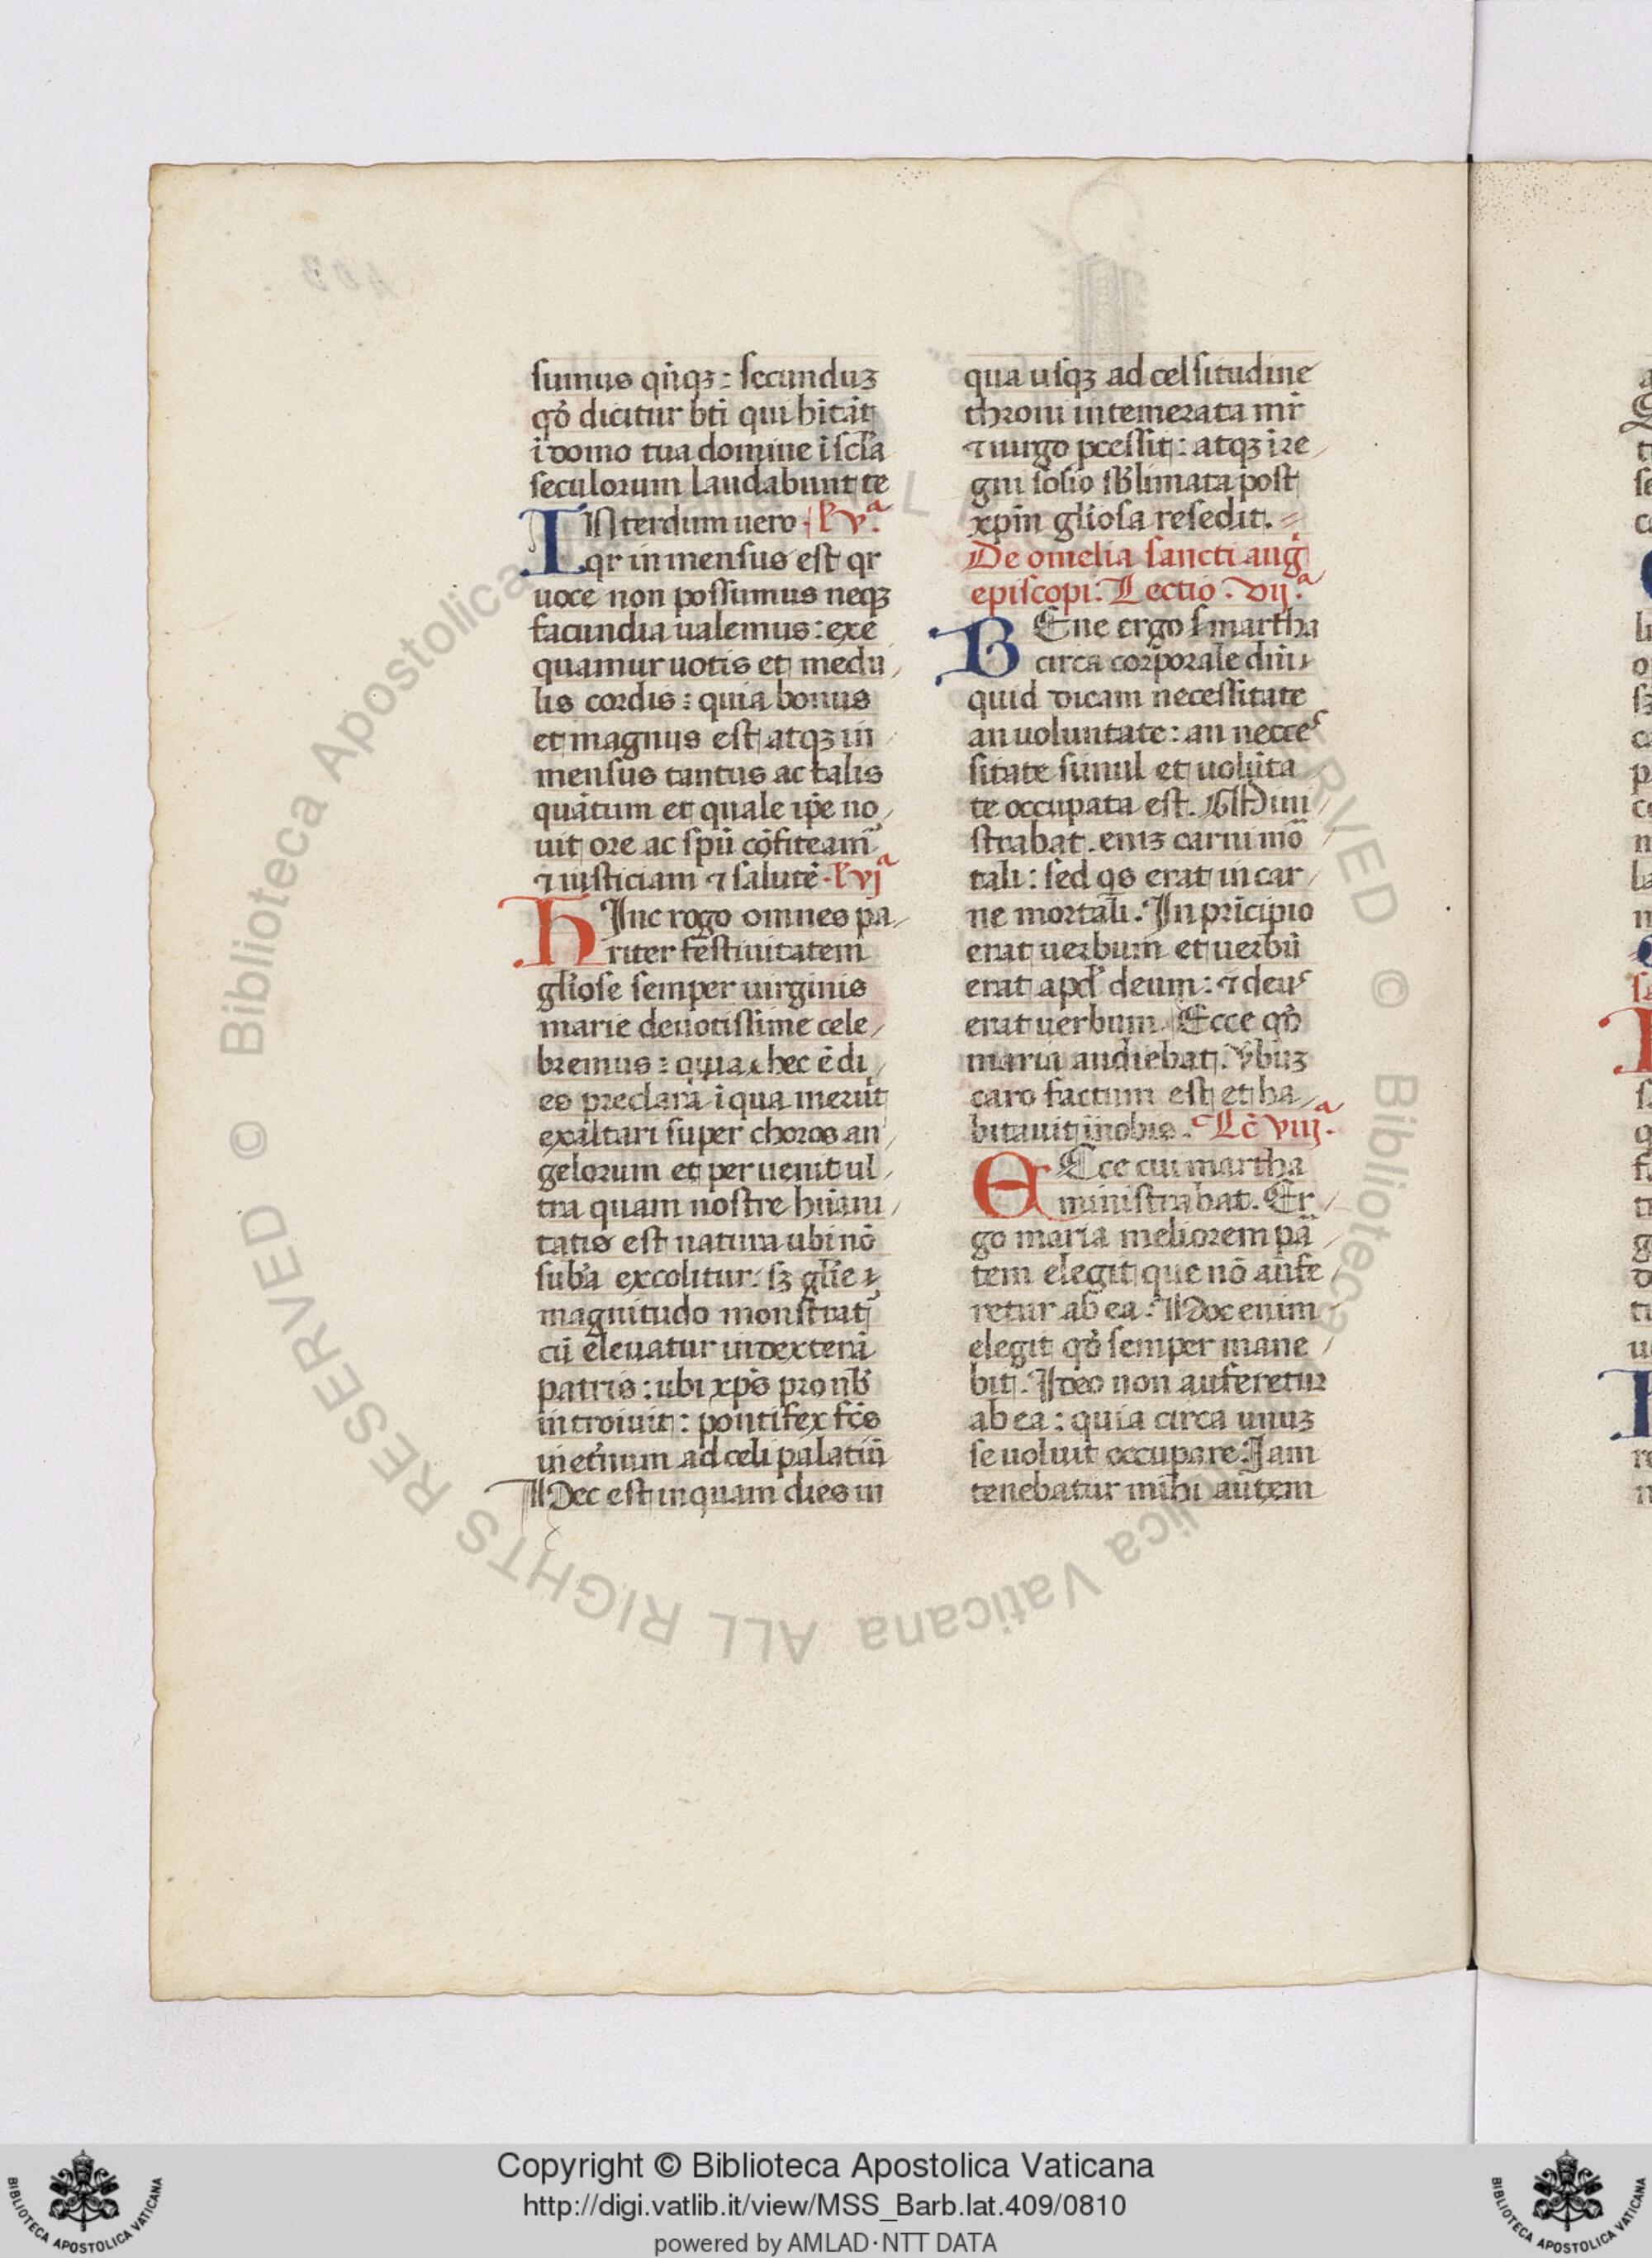 sumus qn̄qꝫ: secunduꝫ
qđ dicitur bti qui hītāt
ī domo tua domine ī scľa
seculorum laudabunt te
INterdum uero. ľ. v.ª
qr inmensus est qr
uoce non possumus neqꝫ
facundia ualemus: exe
quamur uotis et medu
lis cordis: quia bonus
et magnus est atqꝫ in
mensus tantus ac talis
quātum et quale ip̄e no
uit ore ac sp̄u cōfiteam̄
⁊ iusticiam ⁊ salutē. ľ vjª
HInc rogo omnes pa
riter festiuitatem
gľiose semper uirginis
marie deuotissime cele
bremus: quia hec ē di
es preclara ī qua meruit
exaltari super choros an
gelorum et peruenit ul
tra quam nostre hūani
tatis est natura ubi nō
suba excolitur: sꝫ gľie
magnitudo monstrat̄
cū eleuatur in dexterā
patris: ubi xp̄s pro nb̄
introiuit: pontifex fc̄s
in et̄num ad celi palatiū
Hec est inquam dies in
qua usqꝫ ad celsitudine
throni intemerata mr̄
⁊ uirgo p̄cessit: atqꝫ ī re
gni solio sb̄limata post
xp̄m gľiosa resedit.
De omelia sancti auḡ
episcopi. Lectio. vij.ª
BEne ergo s̄ martha
circa corporale
quid dicam necessitate
an uoluntate: an neces
sitate simul et uolūta
te occupata est. Mini
strabat enis carni mo
tali: sed qs erat in car
ne mortali. In prīcipio
erat uerbum et uerbū
erat apđ deum: ⁊ deus
erat uerbum. Ecce qđ
maria audiebat. v̄buꝫ
caro factum est et ha
bitauit ī nobis. Lc̄ viij.ª
ECce cui martha
ministrabat. Er
go maria meliorem pā
tem elegit que nō aufe
retur ab ea. Hoc enim
elegit qđ semper mane
bit. Ideo non auferetur
ab ea: quia circa unuꝫ
se uoluit occupare. Iam
tenebatur mihi autem
© Biblioteca Apostolica Vaticana ALL RIGHTS RESERVED
Copyright © Biblioteca Apostolica Vaticana
http://digi.vatlib.it/view/MSS_Barb.lat.409/0810
powered by AMLAD·NTT DATA
BIBLIOTECA APOSTOLICA VATICANA
BIBLIOTECA APOSTOLICA VATICANA